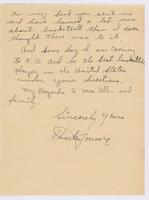 my book you sent me
and have learned a lot more
about basketball than I ever
thought there was to it.
And some day I am coming
to K.U. and be the best basketball
player in the United States
under your directions.
My Regards to Mrs. Allen and
family.
Sincerely Yours
Moore